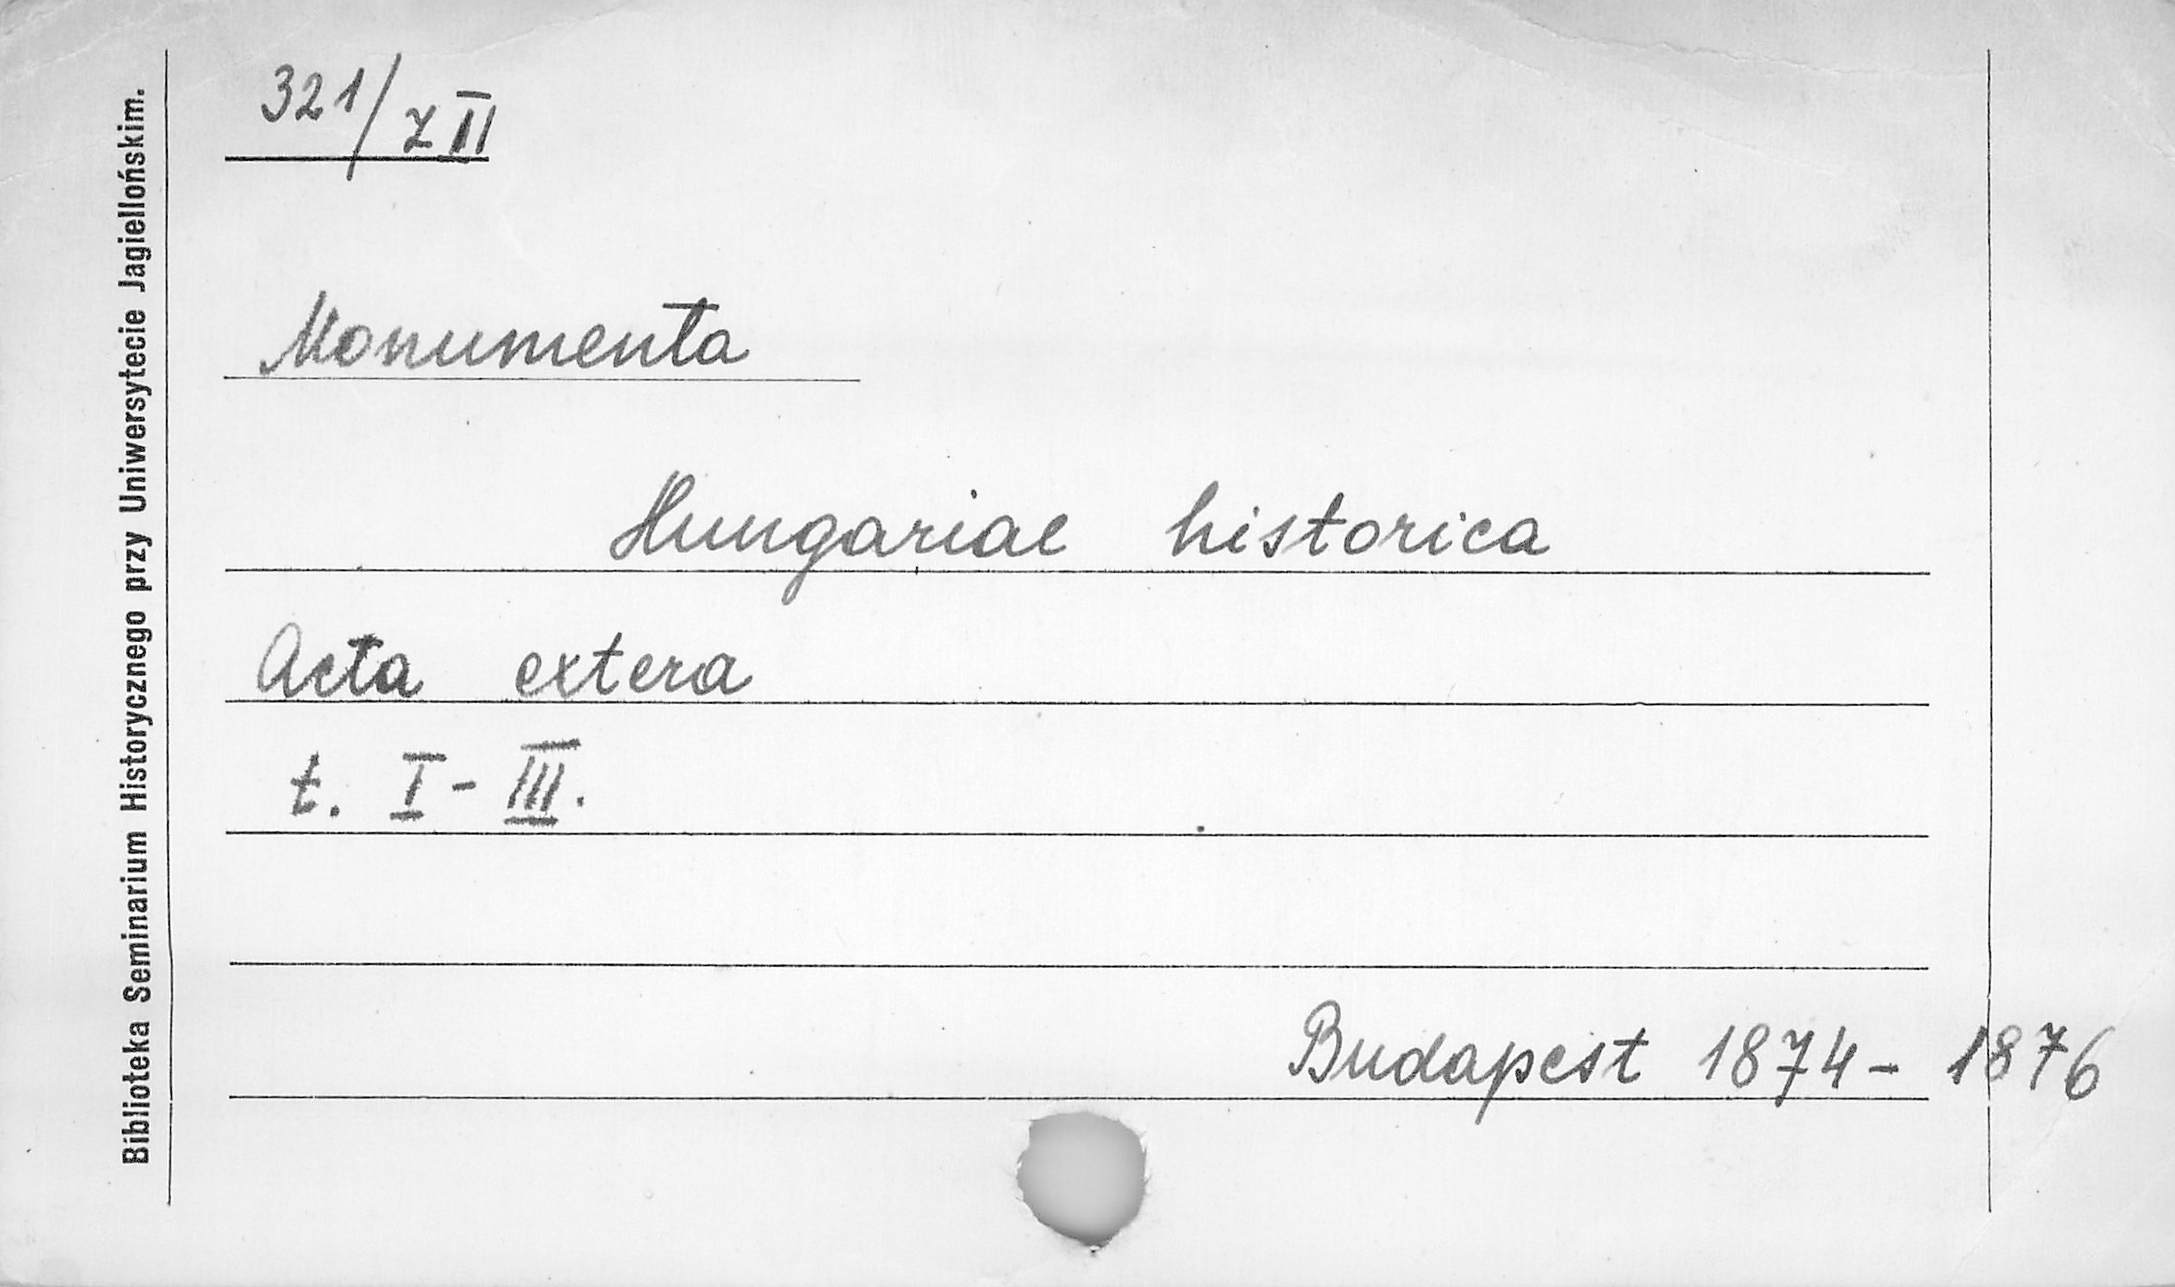 321/z II
Monumenta
Hungariae historica
Acta extera
t. I - III.
Budapest 1874 - 1876
Biblioteka Seminarium Historycznego przy Uniwersytecie Jagiellońskim.